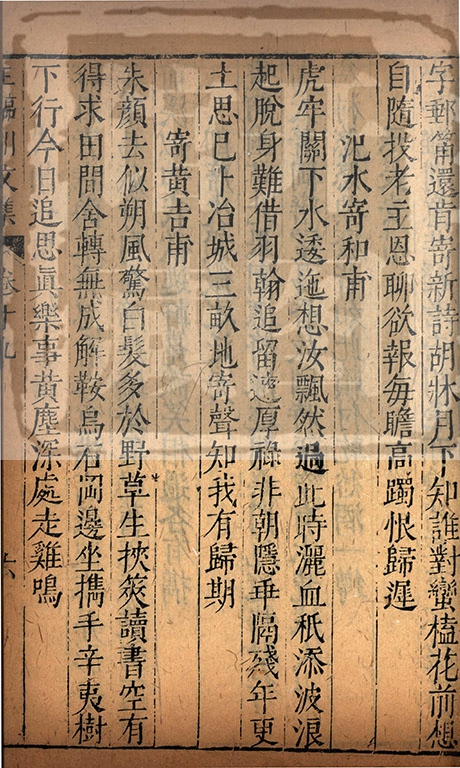 字郵筩還肯寄新詩胡牀月下知誰對蠻榼花前想
自隨投老主恩聊欲報每瞻高躅恨歸遲
氾水寄和甫
虎牢關下水逶迤想汝飄然過此時灑血秪添波浪
起脫身難借羽翰追留連厚祿非朝隱乖隔殘年更
土思已卜冶城三畝地寄聲知我有歸期
寄黃吉甫
朱顏去似朔風驚白髮多於野草生挾筴讀書空有
得求田問舍轉無成解鞍烏石岡邊坐攜手辛夷樹
下行今日追思眞樂事黃塵深處走雞鳴
王臨川文集 卷十九